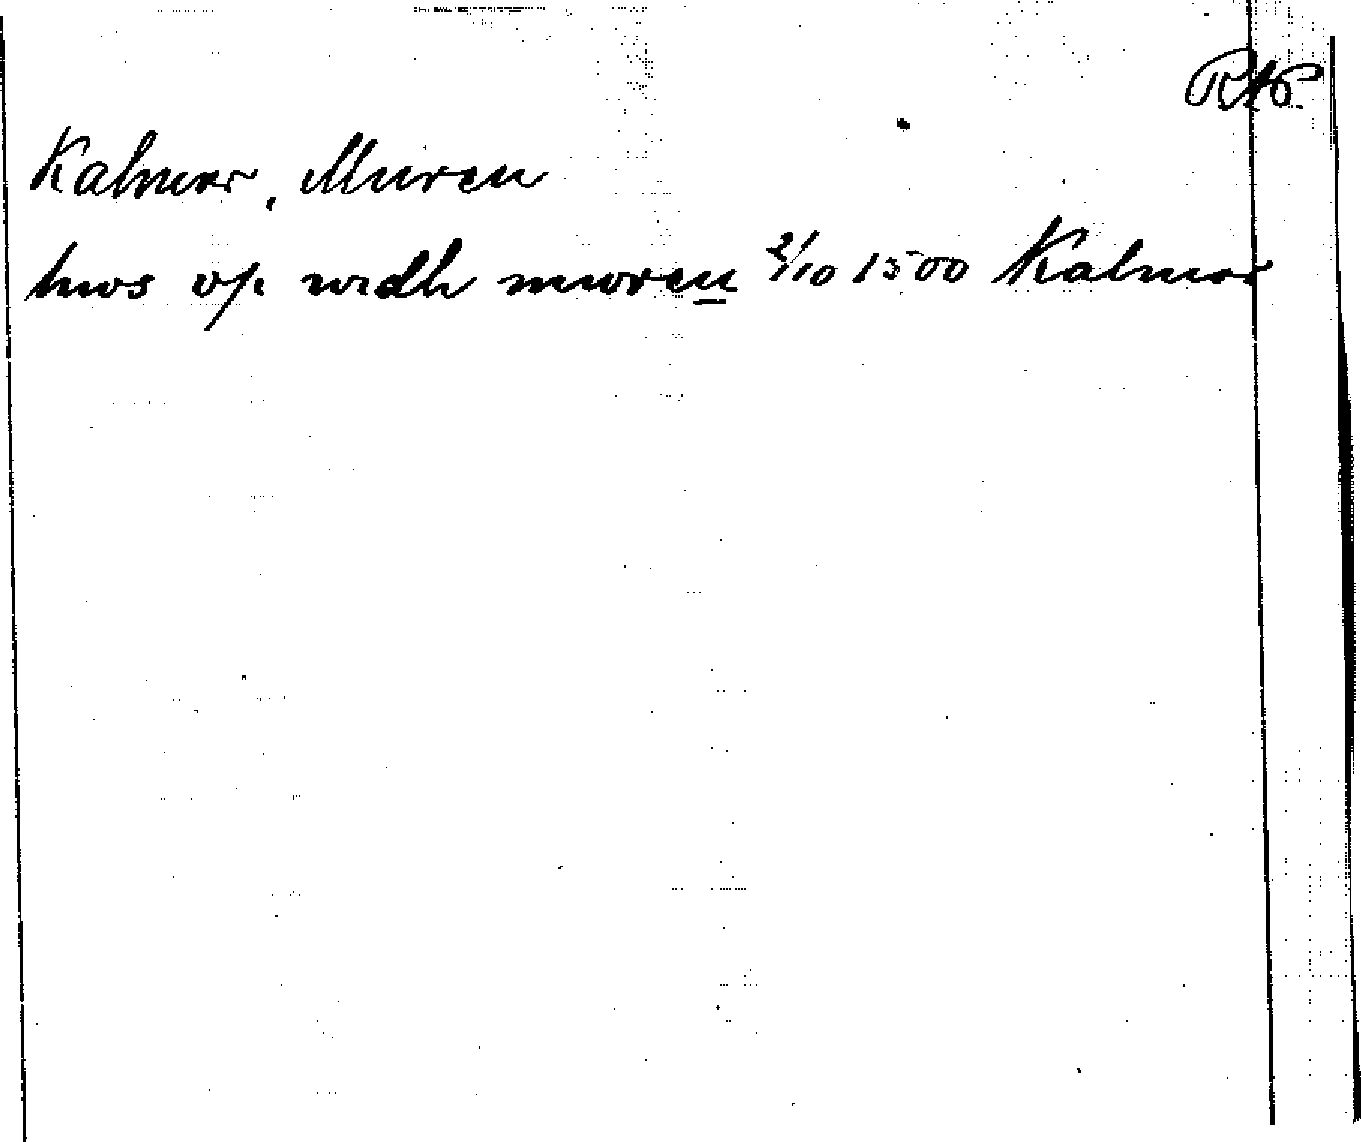 RAP.
Kalmar, Muren
hws vp widh mwren 2/10 1500 Kalmar